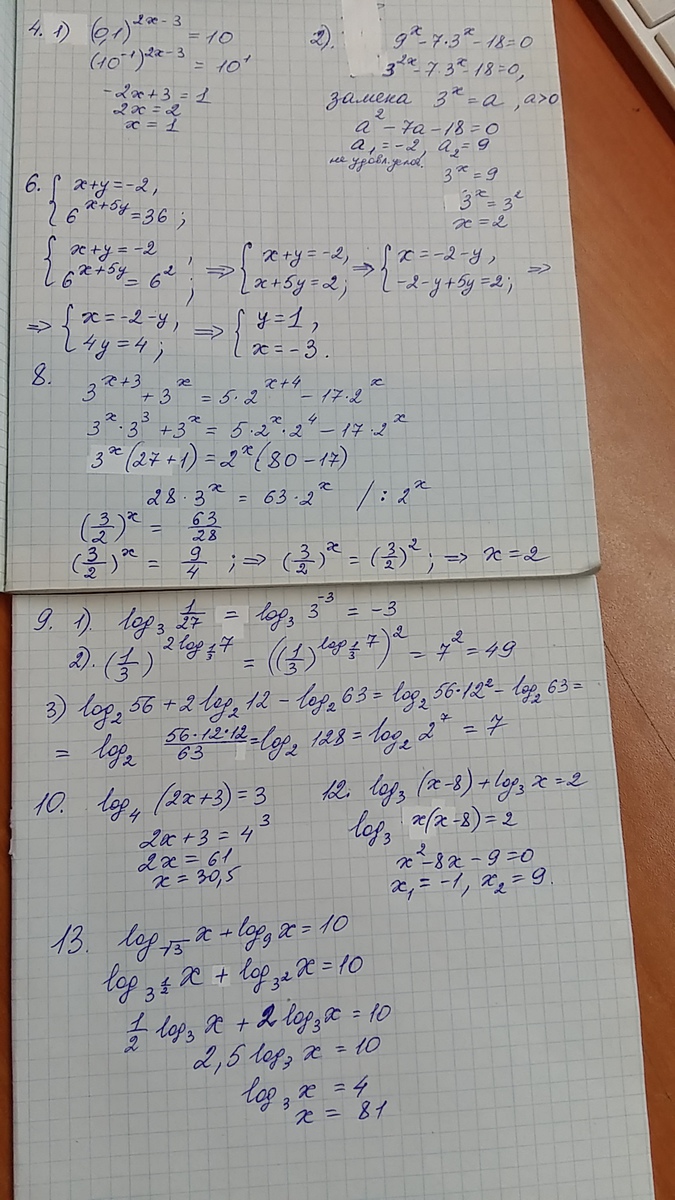 4. 1) (0,1)^{2x-3} = 10
(10^{-1})^{2x-3} = 10^1
-2x+3=1
2x=2
x=1
2). 9^x-7·3^x-18=0
3^{2x}-7·3^x-18=0,
замена 3^x=a, a>0
a^2-7a-18=0
a_1=-2, a_2=9
не удовл. услов.
3^x=9
3^x=3^2
x=2
6. { x+y=-2,
6^{x+5y}=36;
{ x+y=-2, 6^{x+5y}=6^2; ⇒ { x+y=-2, x+5y=2; ⇒ { x=-2-y, -2-y+5y=2; ⇒
⇒ { x=-2-y, 4y=4; ⇒ { y=1, x=-3.
8.
3^{x+3}+3^x=5·2^{x+4}-17·2^x
3^x·3^3+3^x=5·2^x·2^4-17·2^x
3^x(27+1)=2^x(80-17)
28·3^x=63·2^x /:2^x
(3/2)^x=63/28
(3/2)^x=9/4; ⇒ (3/2)^x=(3/2)^2; ⇒ x=2
9. 1). log_3 1/27 = log_3 3^{-3} = -3
2). (1/3)^{2log_{1/3}7} = ((1/3)^{log_{1/3}7})^2 = 7^2 = 49
3) log_2 56+2log_2 12-log_2 63=log_2 56·12^2-log_2 63=
= log_2 56·12·12/63=log_2 128=log_2 2^7=7
10. log_4 (2x+3)=3
2x+3=4^3
2x=61
x=30,5
12. log_3 (x-8)+log_3 x=2
log_3 x(x-8)=2
x^2-8x-9=0
x_1=-1, x_2=9.
13. log_{√3} x+log_9 x=10
log_{3^{1/2}} x + log_{3^2} x=10
1/2 log_3 x + 2 log_3 x=10
2,5 log_3 x = 10
log_3 x = 4
x = 81